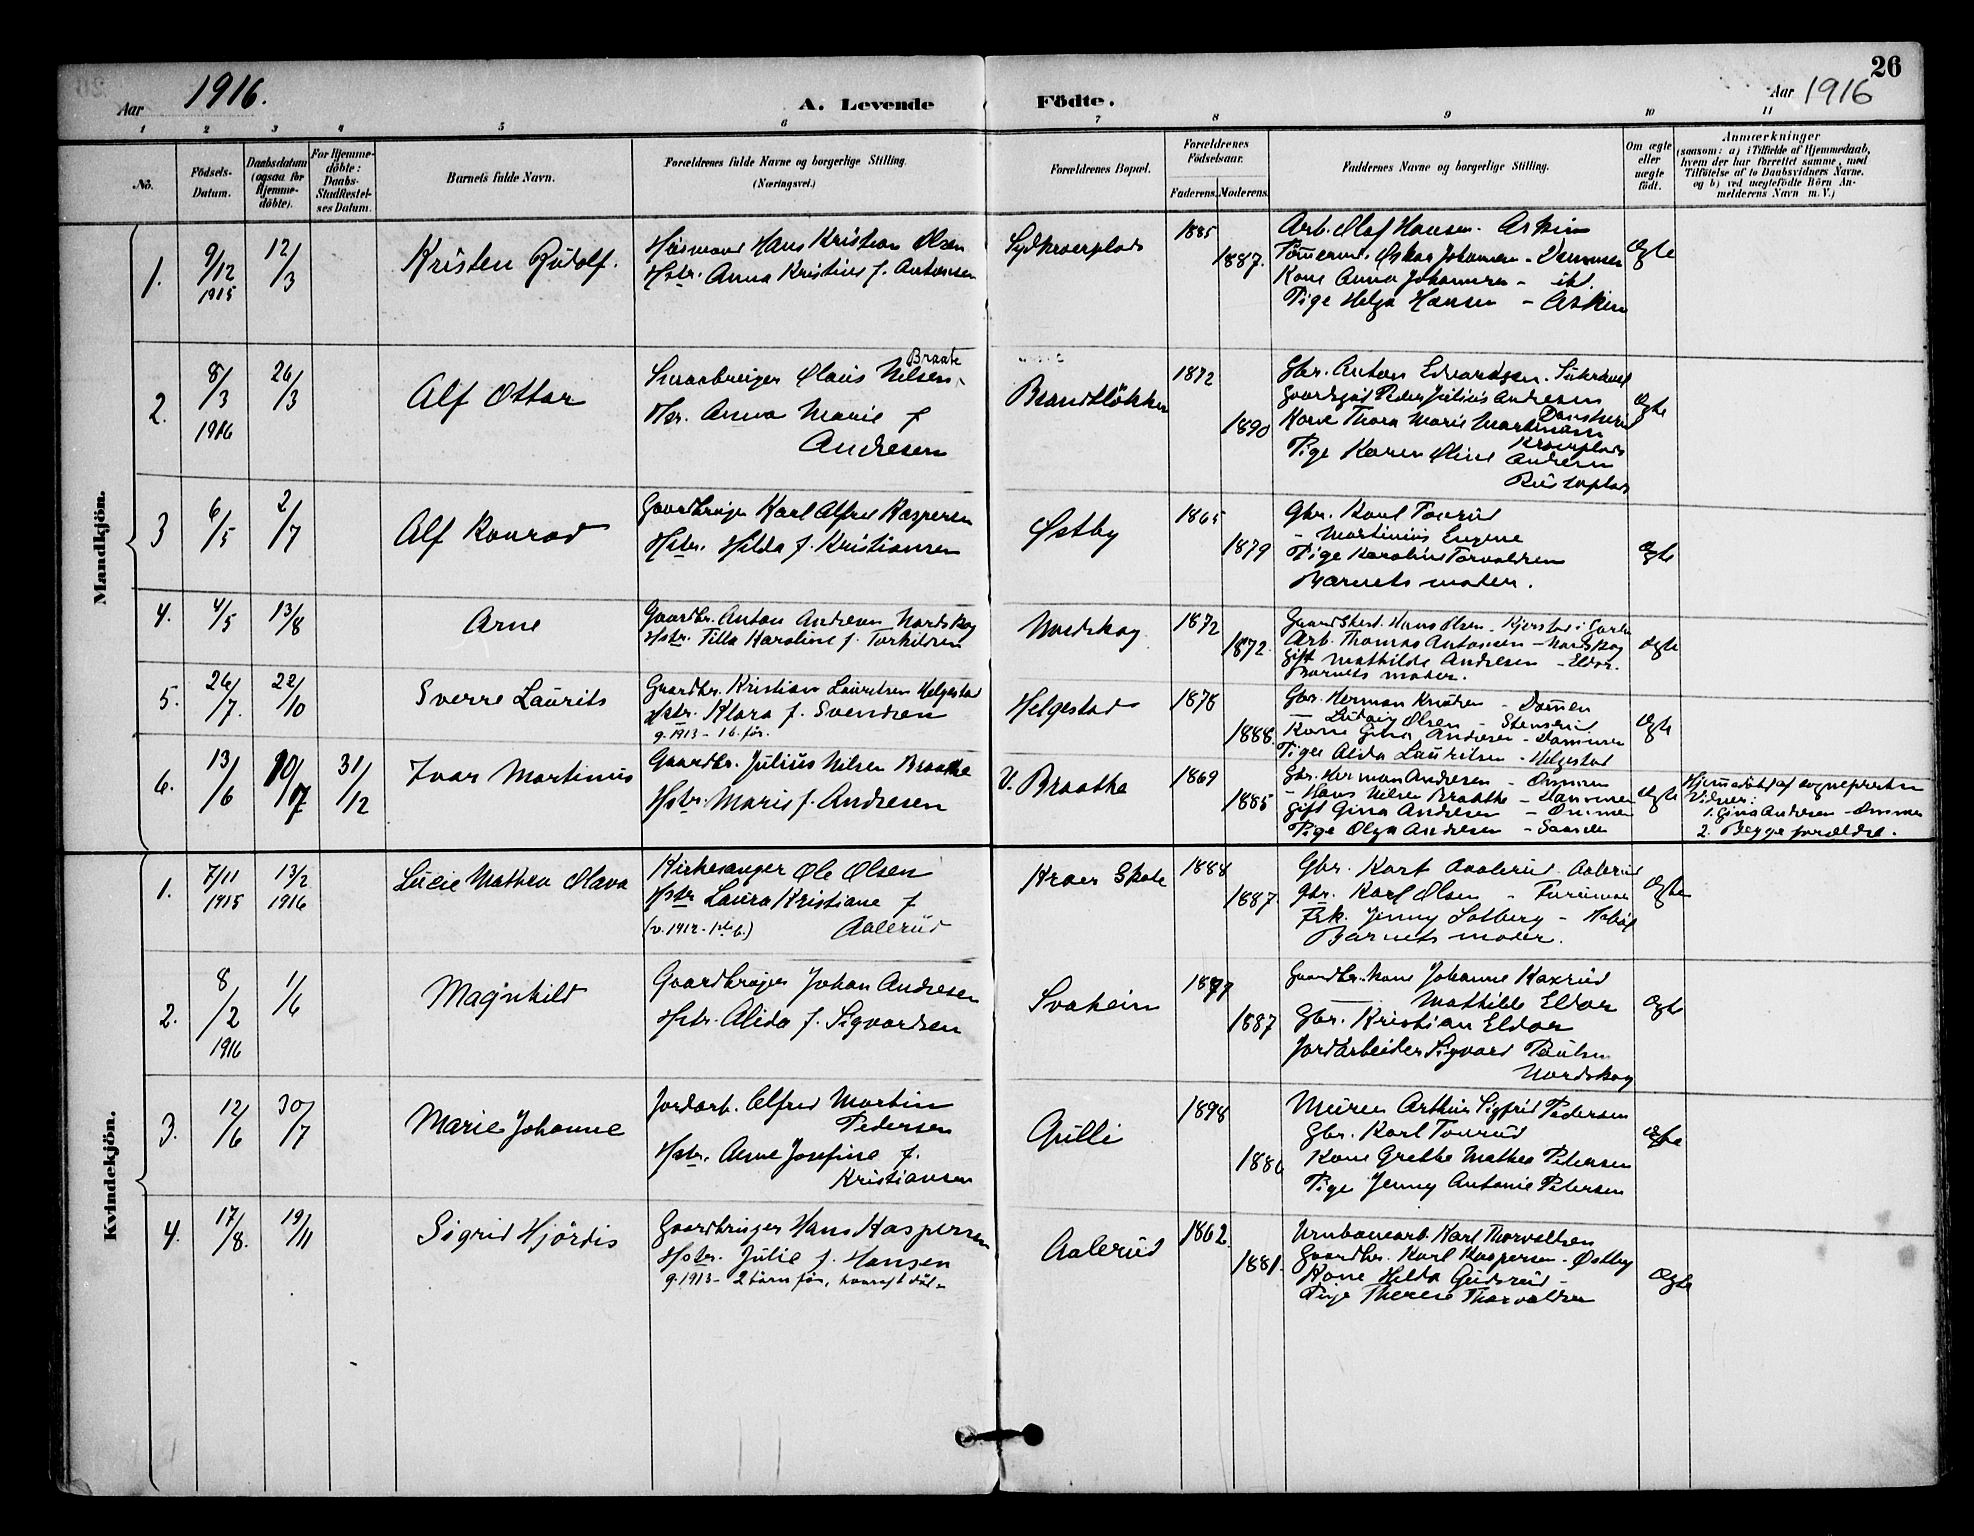 26
Aar 1916.
A. Levende Födte.
Aar 1916
1 2 3 4 5 6 7 8 9 10 11
No.
Födsels-Datum.
Daabsdatum (ogsaa for Hjemme-döbte).
For Hjemme-döbte: Daabs-Stadfæstel-ses Datum.
Barnets fulde Navn.
Forældrenes fulde Navne og borgerlige Stilling.
(Næringsvei.)
Forældrenes Bopæl.
Forældrenes Födselsaar.
Faderens. Moderens.
Faddernes Navne og borgerlige Stilling.
Om ægte eller uægte födt.
Anmærkninger
(saasom: a) i Tilfælde af Hjemmedaab,
hvem der har forrettet samme, med
Tilföielse af to Daabsvidners Navne,
og b) ved uægtefödte Börn An-
melderens Navn m. V.)
Mandkjön.
1. 9/12 1915 12/3 Kristen Rudolf.
Husmand Hans Kristian Olsen
Hstr. Anna Kristine f. Antonsen
Sydkroerplads 1885 1887.
Arb. Olaf Hansen - Askim
Tömmerm. Oskar Johansen - Dammen
Kone Anna Johansen - ibd.
Pige Helga Hansen - Askim
Ægte
2. 8/3 1916 26/3 Alf Ottar
Smaabruger Olaus Nilsen Braate
Hstr. Anna Marie f
Andresen
Brandtløkken 1872 1890
Gbr. Anton Edvardsen
Gaardsgut Peder Julius Andresen
Kone Thora Marie Martinsen
Kroerplads
Pige Karen Oline Andresen
Ægte
3 6/5 2/7 Alf Konrad
Gaardbruger Karl Alfred Kaspersen
Hstr. Hilda f. Kristiansen
Østby 1865 1879
Gbr. Karl Tourud
- Martinius Eugene
Pige Karoline Torvaldsen
Barnets moder.
Ægte
4. 4/5 13/8 Arne
Gaardbr. Anton Andresen Nordskog
Hstr. Tilla Karoline f. Torkildsen
Nordskog 1872 1872.
Hans Olsen
Arb. Thomas Antonsen - Nordskog
Gift Mathilde Andresen - Eldor.
Barnets moder.
Ægte
5. 26/7. 22/10 Sverre Laurits
Gaardbr. Kristian Lauritsen Helgestad
Hstr. Klara f. Svendsen
g. 1913 - 1 b. før.
Helgestad 1878 1888.
Gbr. Herman Knudsen - Dammen
- Ludvig Olsen - Stenserud
Kone Gina Andresen - Dammen
Pige Alda Lauritsen - Helgestad
Ægte
6. 13/6 10/7 31/12 Ivar Martinius
Gaardbr. Julius Nilsen Braathe
Hstr. Marie f. Andresen
V. Braathe 1869 1885
Gbr. Herman Andresen - Dammen
- Hans Nilsen Braathe - Dammen
Gift Gina Andresen - Dammen
Pige Olga Andresen
Ægte
Hjemmedöbt af sognepresten
Vidner:
1. Gina Andresen - Dammen
2. Begge forældre.
Kvindekjön.
1. 7/11 1915 13/2 1916 Lucie Mathea Olava
Kirkesanger Ole Olsen
Hstr. Laura Kristiane f
(v. 1912 - 1ste b.) Aalerud
Kroer Skole 1888 1887.
Gbr. Karl Aalerud Aalerud
Gbr. Karl Olsen
Frk. Jenny Solberg - Hobøl
Barnets moder.
Ægte
2. 8/2 1916 1/6 Magnhild
Gaardbruger Johan Andresen
Hstr. Alida f. Sigvardsen
Svahein 1879 1887
Gaardbr. Kone Johanne Kaxrud
Mathilde Eldor
Gbr. Kristian Eldor
Jordarbeider Sigvard Paulsen
Nordskog
Ægte
3. 12/6 30/7 Marie Johanne
Jordarb. Alfred Martin
Pedersen
Hstr. Anne Josefine f.
Kristiansen
Gulli 1898 1886
Murer Arthur Sigfrid Pedersen
Gbr. Karl Tourud
Kone Grethe Mathea Petersen
Pige Jenny Antonie Petersen
Ægte
4. 17/8. 19/11 Sigrid Hjördis
Gaardbruger Hans Kaspersen
Hstr. Julie f. Hansen
g. 1913 - 2 børn før, hvoraf 1 død
Aalerud 1862. 1881.
Karl Thorvaldsen
Gaardbr. Karl Kaspersen - Østby
Kone Hilda Gudsrud -
Pige Therese Thorvaldsen
Ægte